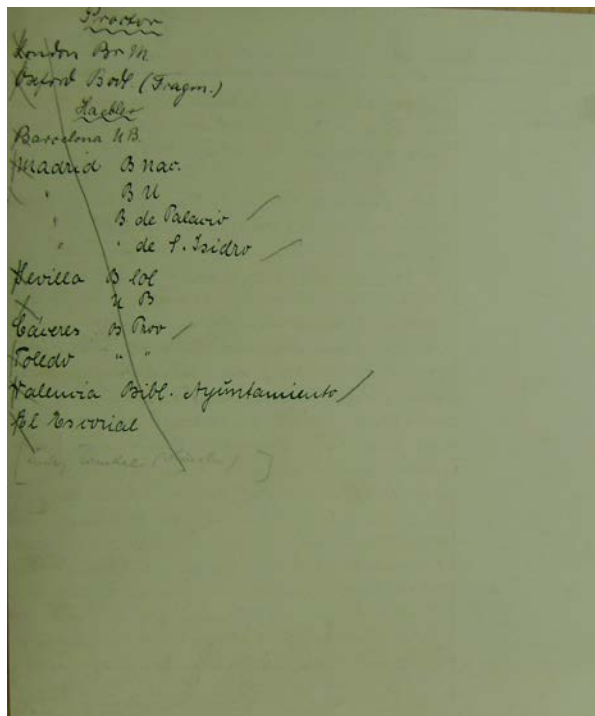 Proctor
London Br M.
Oxford Bodl. (Fragm.)
Haebler
Barcelona U B.
Madrid B Nac.
" B U
" B de Palacio
" " de S. Isidro
Sevilla B Col
U B
Cáveres B Prov
Toledo " "
Valencia Bibl. Ayúntamiento
El Escorial